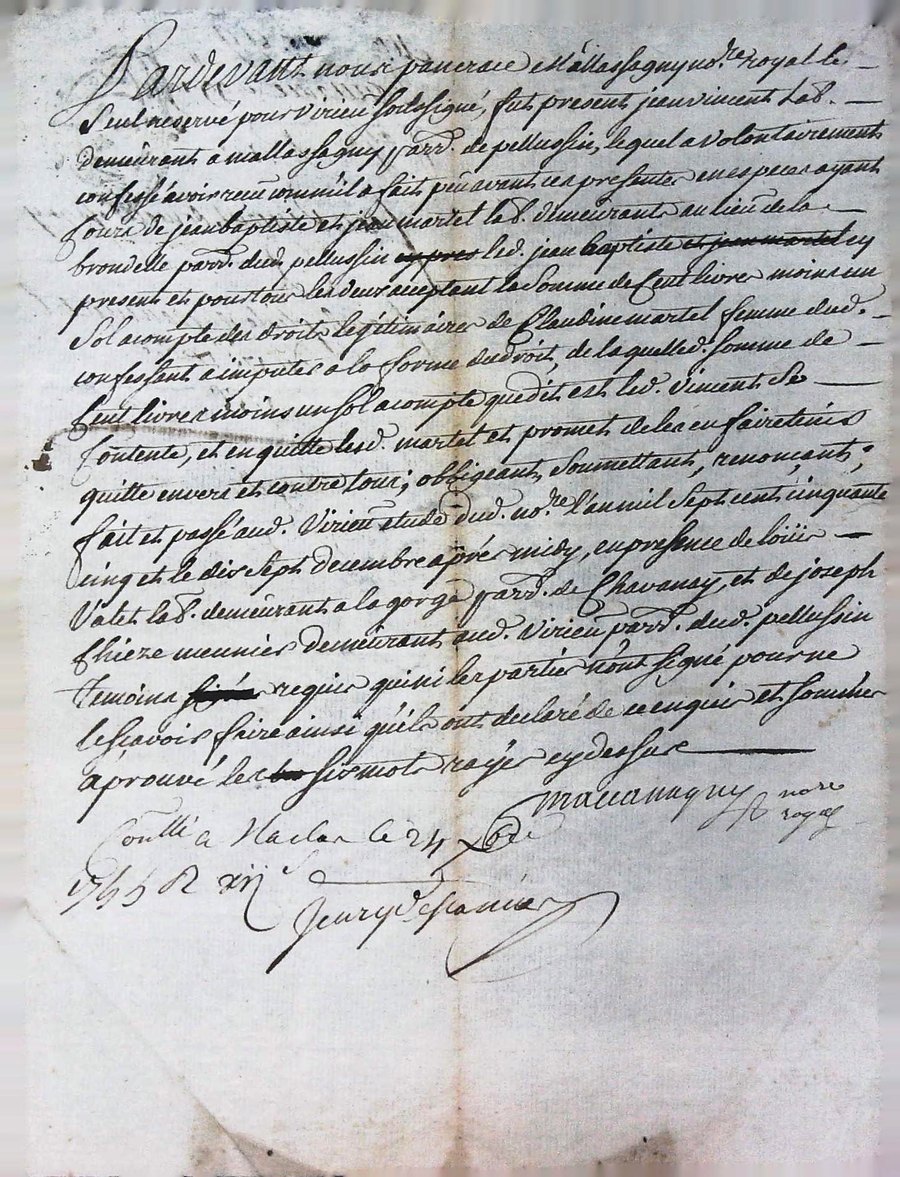 Pardevant nous pancrace Mallassagny no.re royal le
Seul reservé pour Virieu soussigné, fut present jean vincent lab.
demeurant a mallassagny parr. de pellussin, lequel a volontairement
confessé avoir reçu comm'il a fait peu avant ces presentes en especes ayant
Cours de jean baptiste et jean martel lab. demeurants au lieu de la
brondelle parr. dud. pellussin cy pres led. jean baptiste et jean martel cy
present et pour tous les deux acceptant la Somme de Cent livres moins un
Sol acompte des droits legitimaires de Claudine martel femme dud.
confessant a imputer a la forme du droit, de laquelled. somme de
Cent livres moins un sol acompte que dit est led. vincent Se
Contente, et en quitte lesd. martel et promet de les en faire tenir
quitte envers et contre tous; obligeant, Soumettant, renonçant;
fait et passé aud. Virieu etude dud. no.re l'an mil Sept cent cinquante
cinq et le dix sept decembre après midy, en presence de loüis
Valet lab. demeurant a la gorge parr. de Chavanay, et de joseph
Chieze meunier demeurant aud. Virieu parr. dud. pellussin
Temoins requis qui ni les parties n'ont signé pour ne
le sçavoir faire ainsi qu'ils ont declaré de ce enquis et sommés
aprouvé les six mots rayés cy dessus
Mallassagny no.re
royal
Conllé a Maclas le 24 Xbre
1755 R xij s